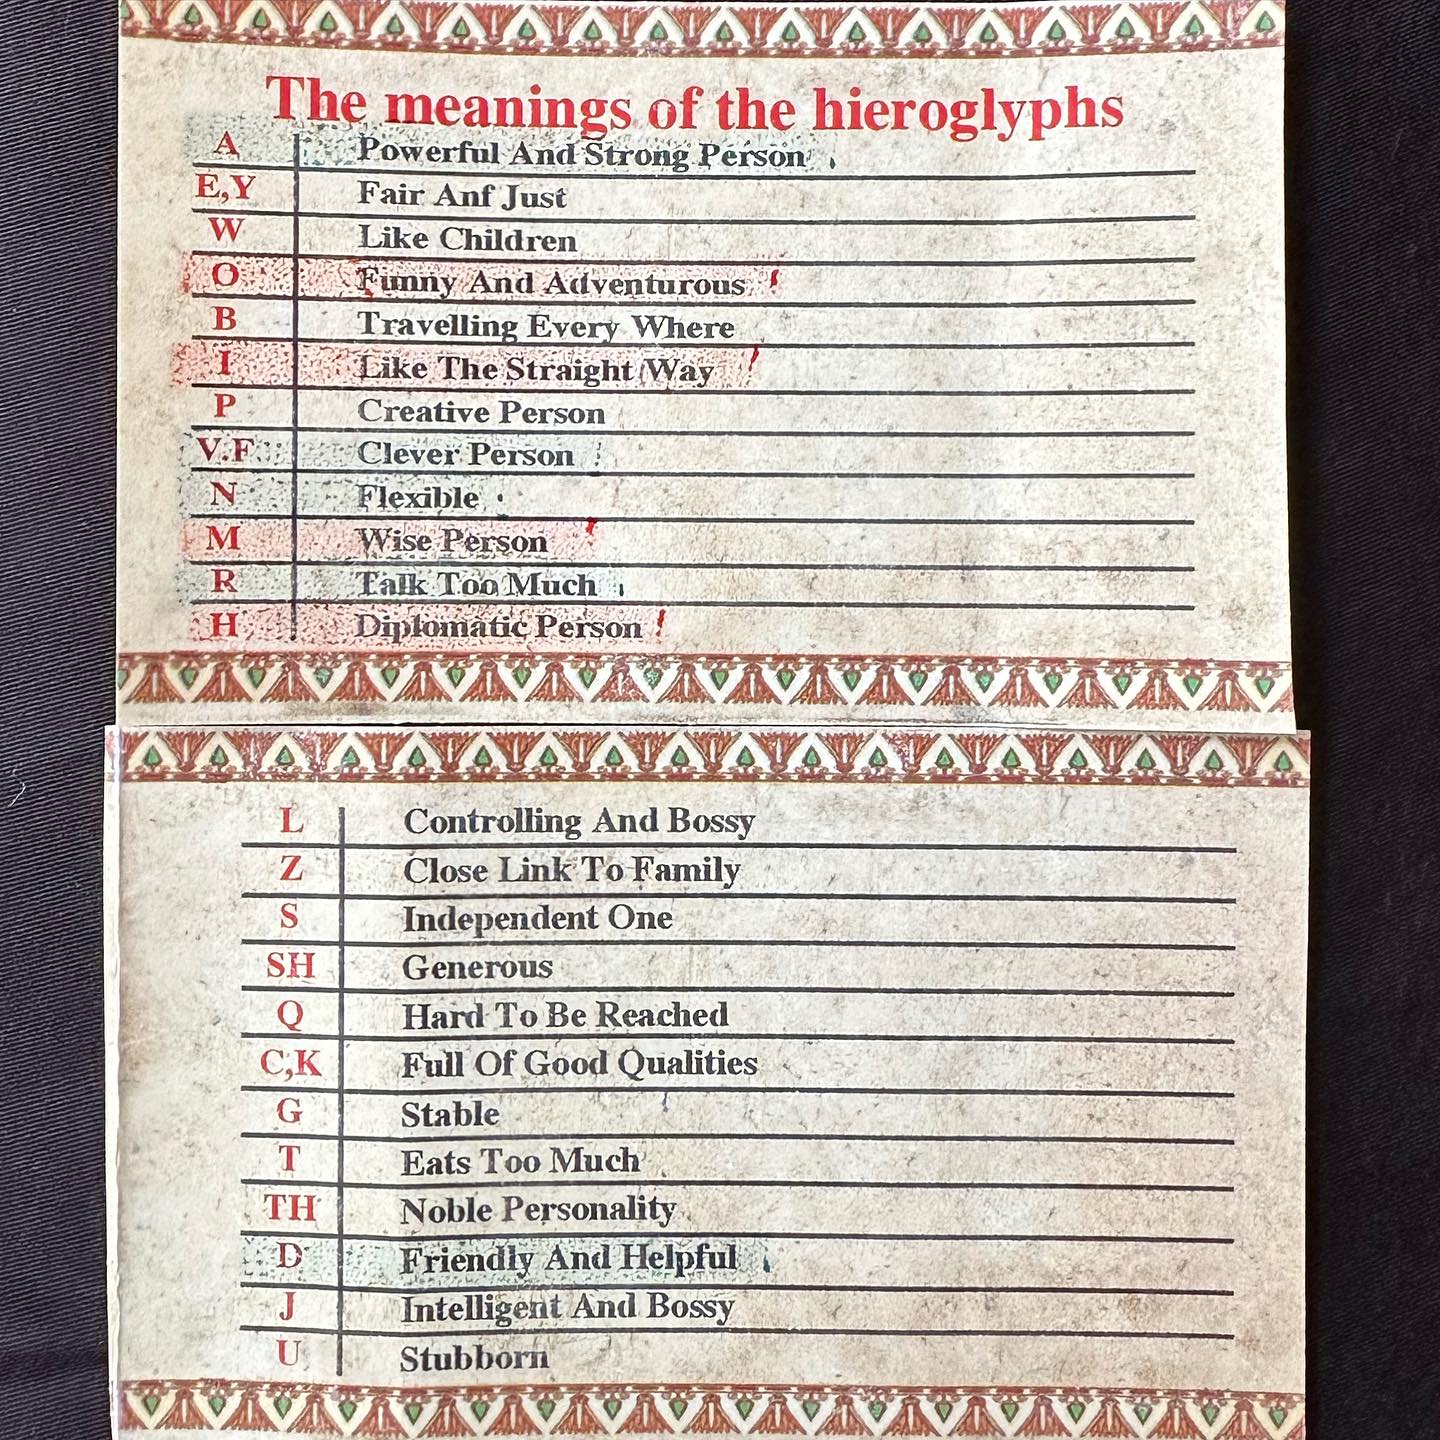 The meanings of the hieroglyphs
A Powerful And Strong Person
E,Y Fair Anf Just
W Like Children
O Funny And Adventurous
B Travelling Every Where
I Like The Straight Way
P Creative Person
V.F Clever Person
N Flexible
M Wise Person
R Talk Too Much
H Diplomatic Person
L Controlling And Bossy
Z Close Link To Family
S Independent One
SH Generous
Q Hard To Be Reached
C,K Full Of Good Qualities
G Stable
T Eats Too Much
TH Noble Personality
D Friendly And Helpful
J Intelligent And Bossy
U Stubborn